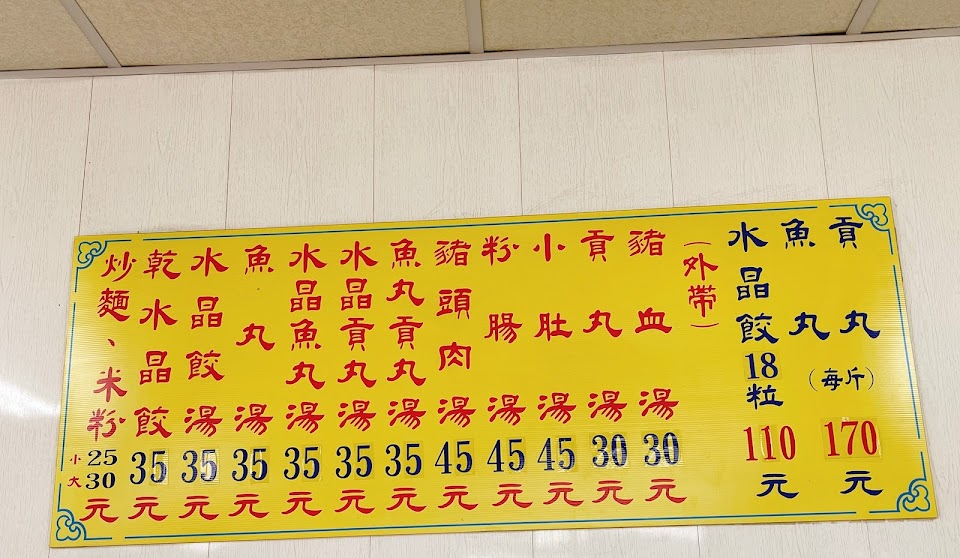 貢丸
魚丸
(每斤)
170元
水晶餃18粒110元
(外帶)
豬血湯30元
貢丸湯30元
小肚湯45元
粉腸湯45元
豬頭肉湯45元
魚丸貢丸湯35元
水晶貢丸湯35元
水晶魚丸湯35元
魚丸湯35元
水晶餃湯35元
乾水晶餃35元
炒麵、米粉
小25
大30
元